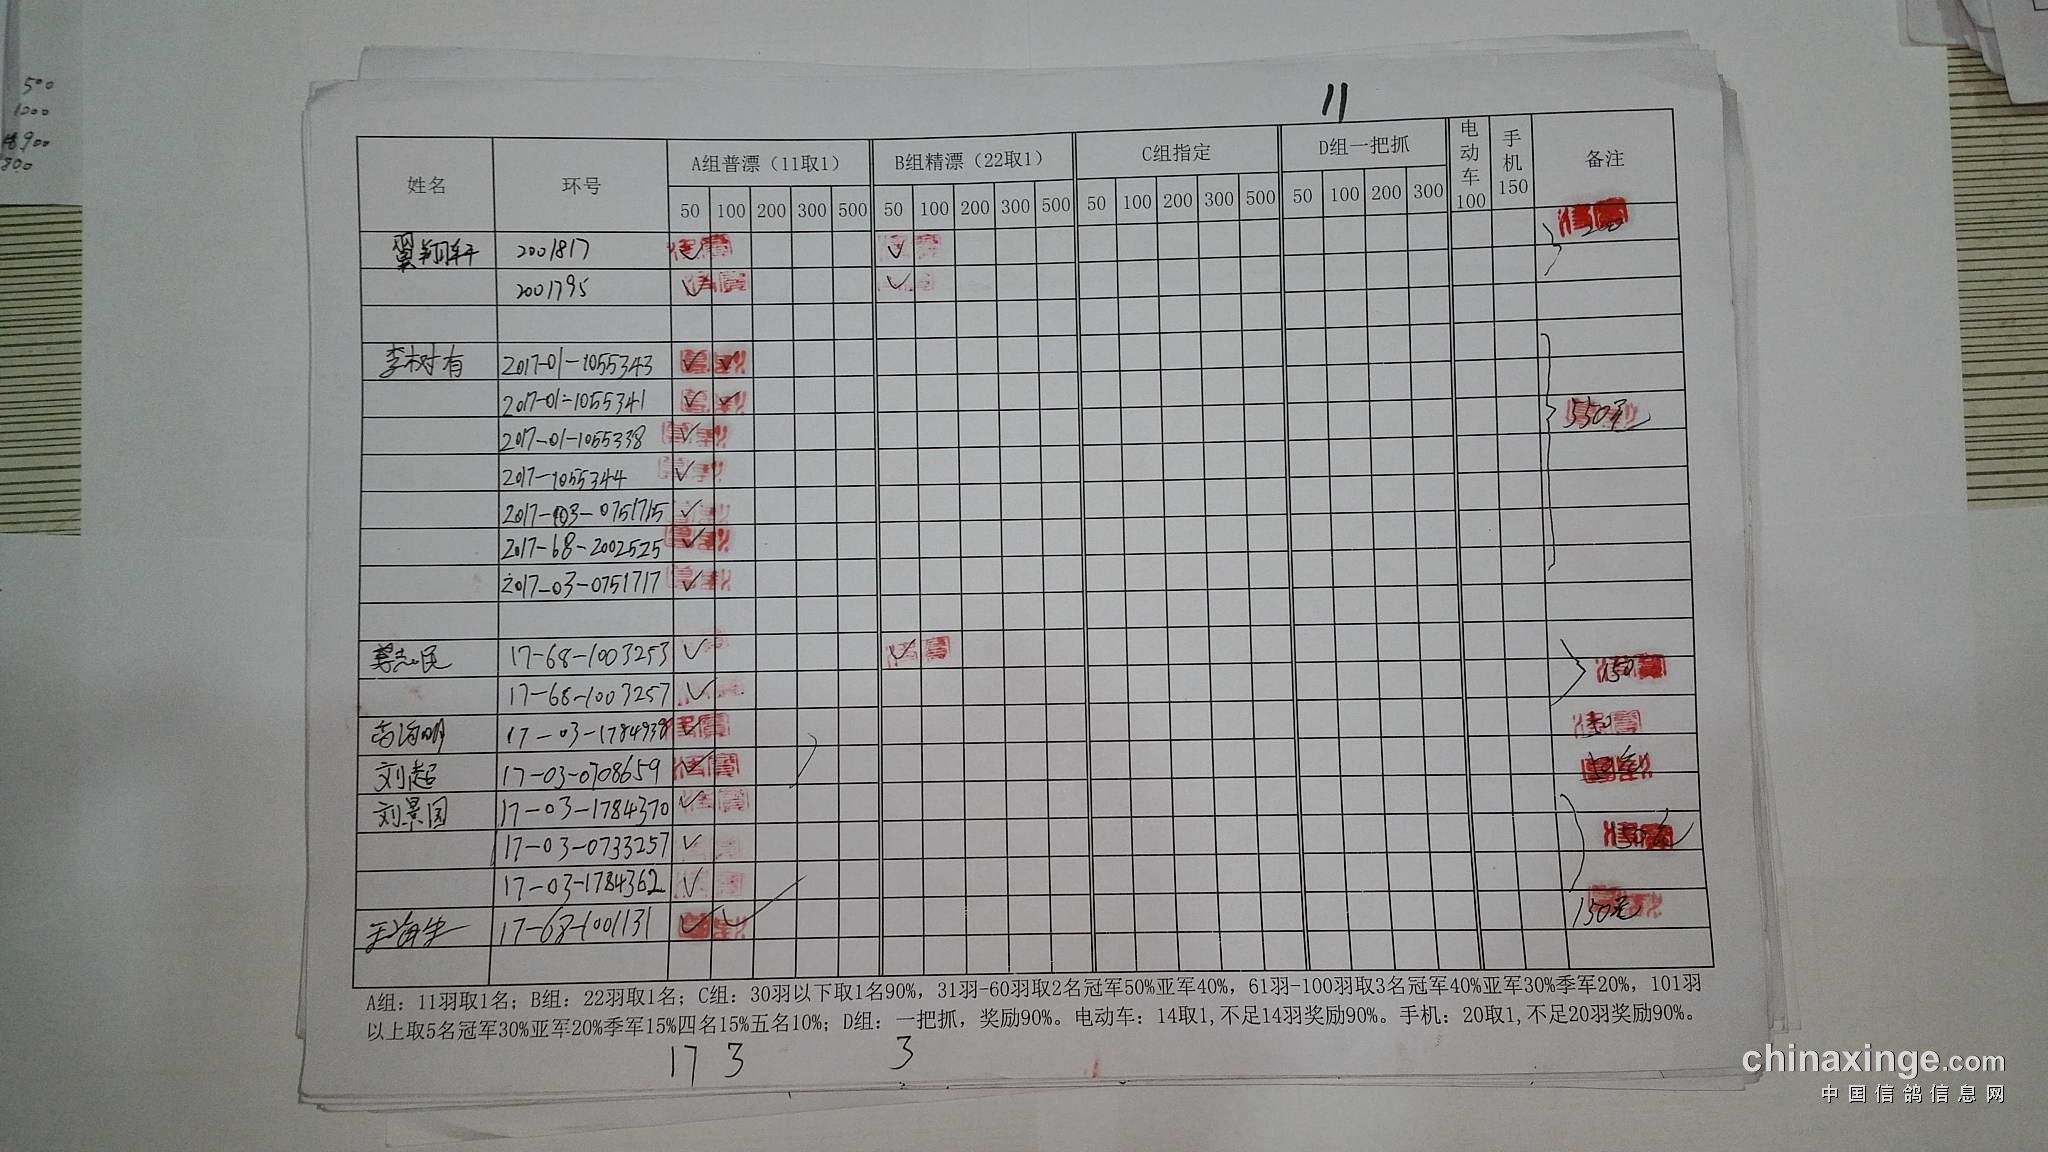 500
1000
800
11
姓名 环号 A组普漂（11取1） B组精漂（22取1） C组指定 D组一把抓 电动车100 手机150 备注
50 100 200 300 500 50 100 200 300 500 50 100 200 300 500 50 100 200 300
翼翔轩 2001817 ✓ ✓ 200
2001795 ✓ ✓
李树有 2017-01-1055343 ✓ ✓
2017-01-1055341 ✓ ✓ 550元
2017-01-1055338 ✓
2017-1055344 ✓
2017-03-0751715 ✓
2017-68-2002525 ✓
2017-03-0751717 ✓
志民 17-68-1003253 ✓ ✓ 150
17-68-1003257 ✓
明 17-03-1784938 ✓ 50
刘超 17-03-0708659 ✓
刘景国 17-03-1784370 ✓
17-03-0733257 ✓ 150元
17-03-1784362 ✓
王海生 17-68-1001131 ✓ ✓ 150元
A组：11羽取1名；B组：22羽取1名；C组：30羽以下取1名90%，31羽-60羽取2名冠军50%亚军40%，61羽-100羽取3名冠军40%亚军30%季军20%，101羽
以上取5名冠军30%亚军20%季军15%四名15%五名10%；D组：一把抓，奖励90%。电动车：14取1,不足14羽奖励90%。手机：20取1,不足20羽奖励90%。
17 3 3
chinaxinge.com
中国信鸽信息网